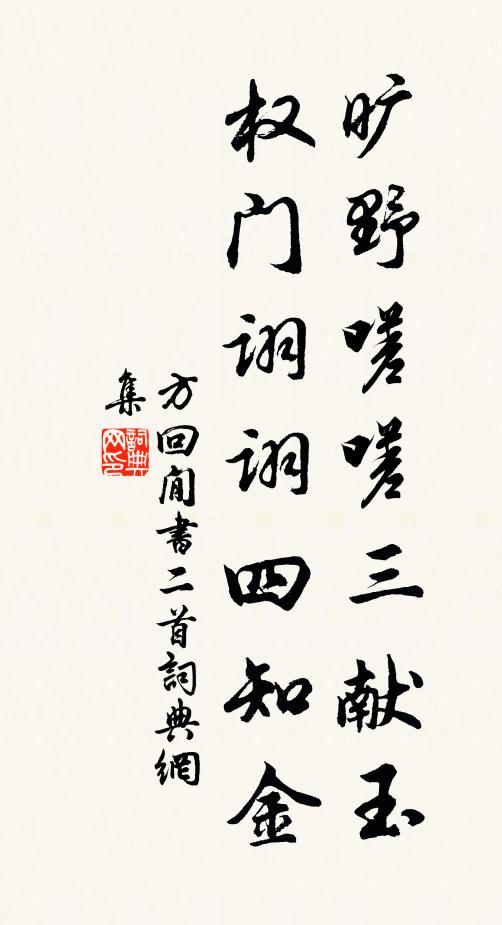 旷野嗟嗟三献玉
权门诩诩四知金
方回閒書二首詞典網
集
詞典网印